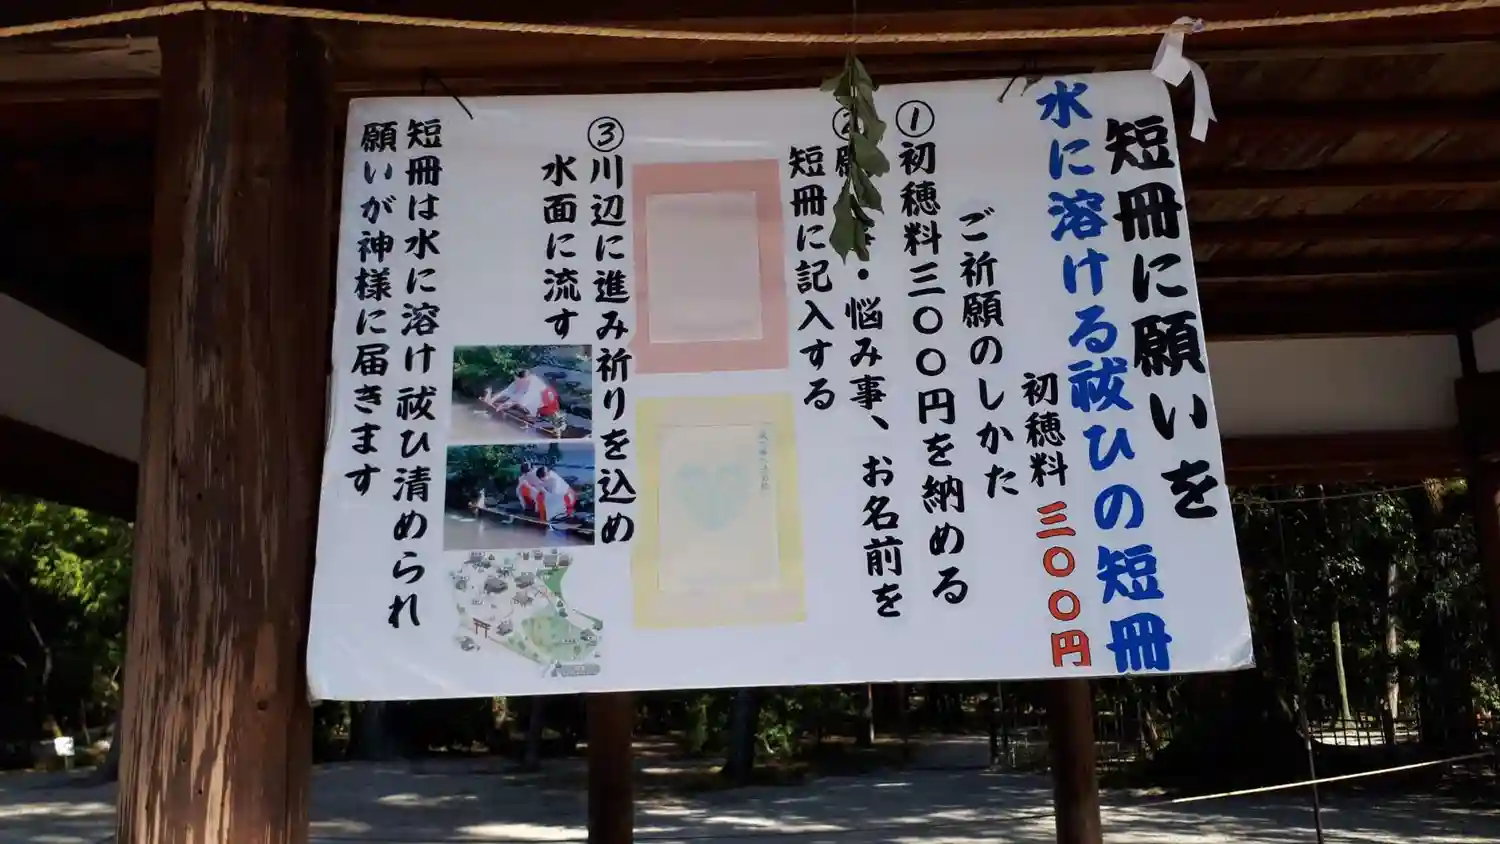 短冊に願いを
水に溶ける祓ひの短冊
初穂料 三〇〇円
ご祈願のしかた
①初穂料三〇〇円を納める
②願 事・悩み事、お名前を
短冊に記入する
③川辺に進み祈りを込め
水面に流す
短冊は水に溶け祓ひ清められ
願いが神様に届きます